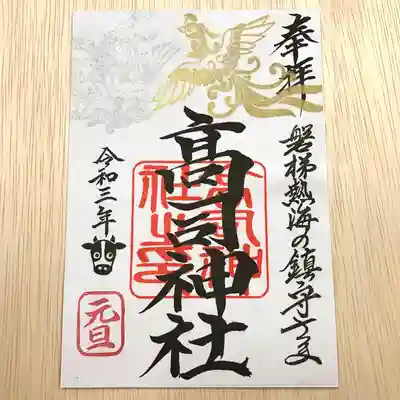 奉拝
磐梯熱海の鎮守さま
高司神社
令和三年
元旦